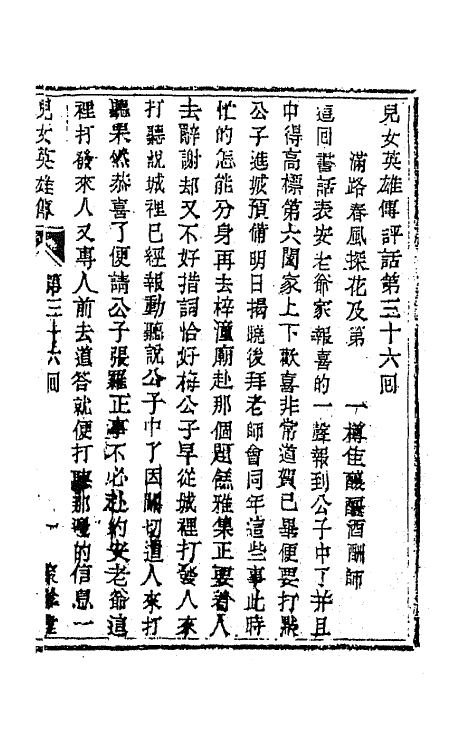 兒女英雄傳評話第三十六回
滿路春風探花及第 一樽佳釀釃酒酬師
這回書話表安老爺家報喜的一聲報到公子中了并且
中得高標第六闔家上下歡喜非常道賀已畢便要打點
公子進城預備明日揭曉後拜老師會同年這些事此時
忙的怎能分身再去梓潼廟赴那個題糕雅集正要着人
去辭謝却又不好措詞恰好梅公子早從城裡打發人來
打聽說城裡已經報動聽說公子中了因關切遣人來打
聽果然恭喜了便請公子張羅正事不必赴約安老爺這
裡打發來人又專人前去道答就便打聽那邊的信息一
兒女英雄傳 第三十六回 一